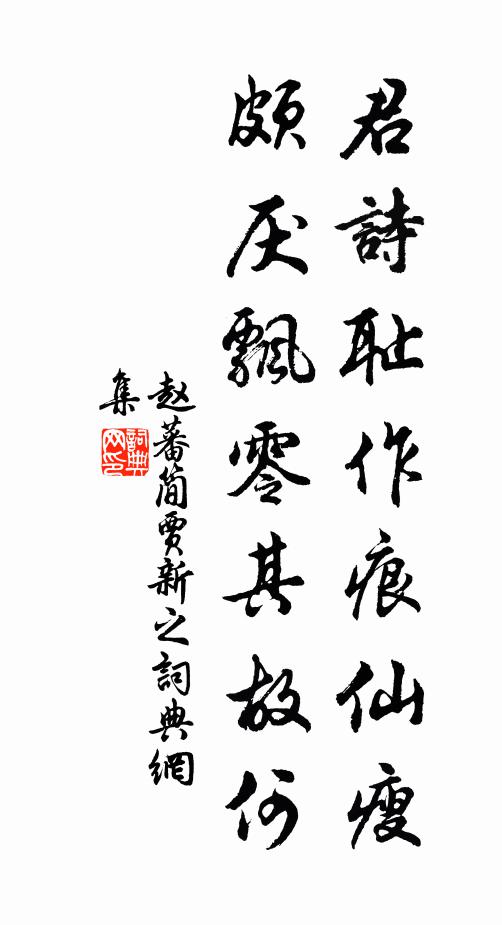 君詩耻作痕仙瘦
頗厌飄零其故何
赵蕃简賈新之詞典網
集
詞典网印